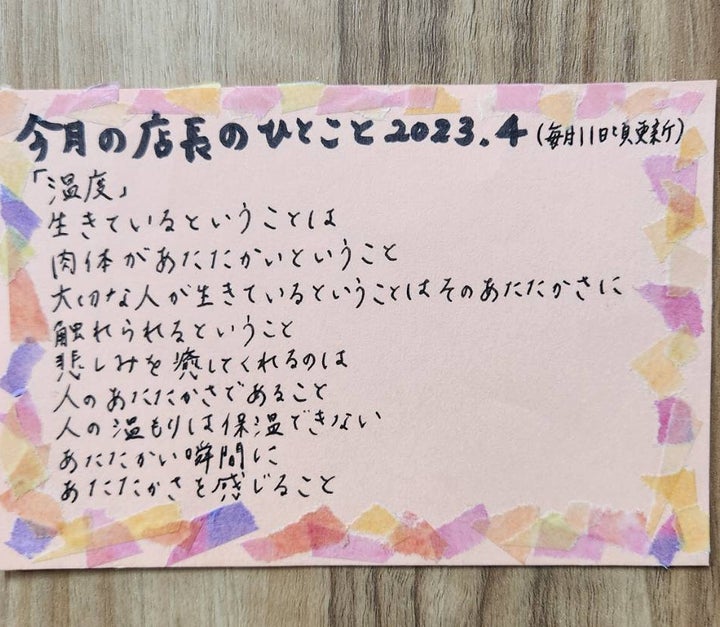 今月の店長のひとこと2023.4(毎月11日頃更新)
「温度」
生きているということは
肉体があたたかいということ
大切な人が生きているということはそのあたたかさに
触れられるということ
悲しみを癒してくれるのは
人のあたたかさであること
人の温もりは保温できない
あたたかい瞬間に
あたたかさを感じること